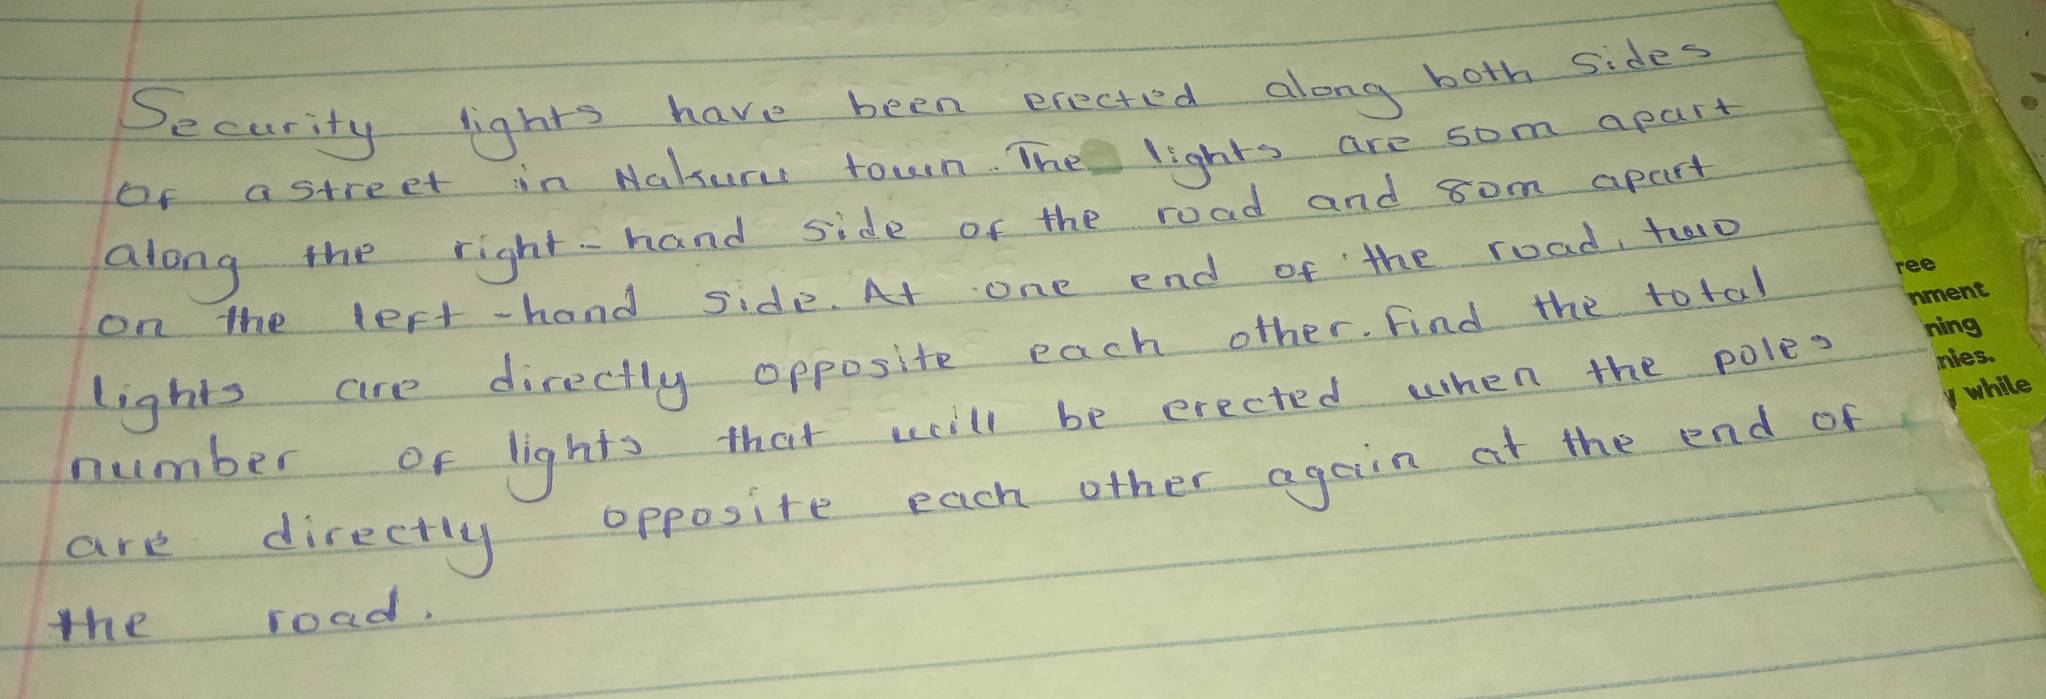 Security lights have been erected along both sides
of a street in Nakuru town. The lights are 50m apart
along the right-hand side of the road and 80m apart
on the left-hand side. At one end of the road, two
lights are directly opposite each other. Find the total
number of lights that will be erected when the poles
are directly opposite each other again at the end of
the road.
ree
nment
ning
nies.
y while